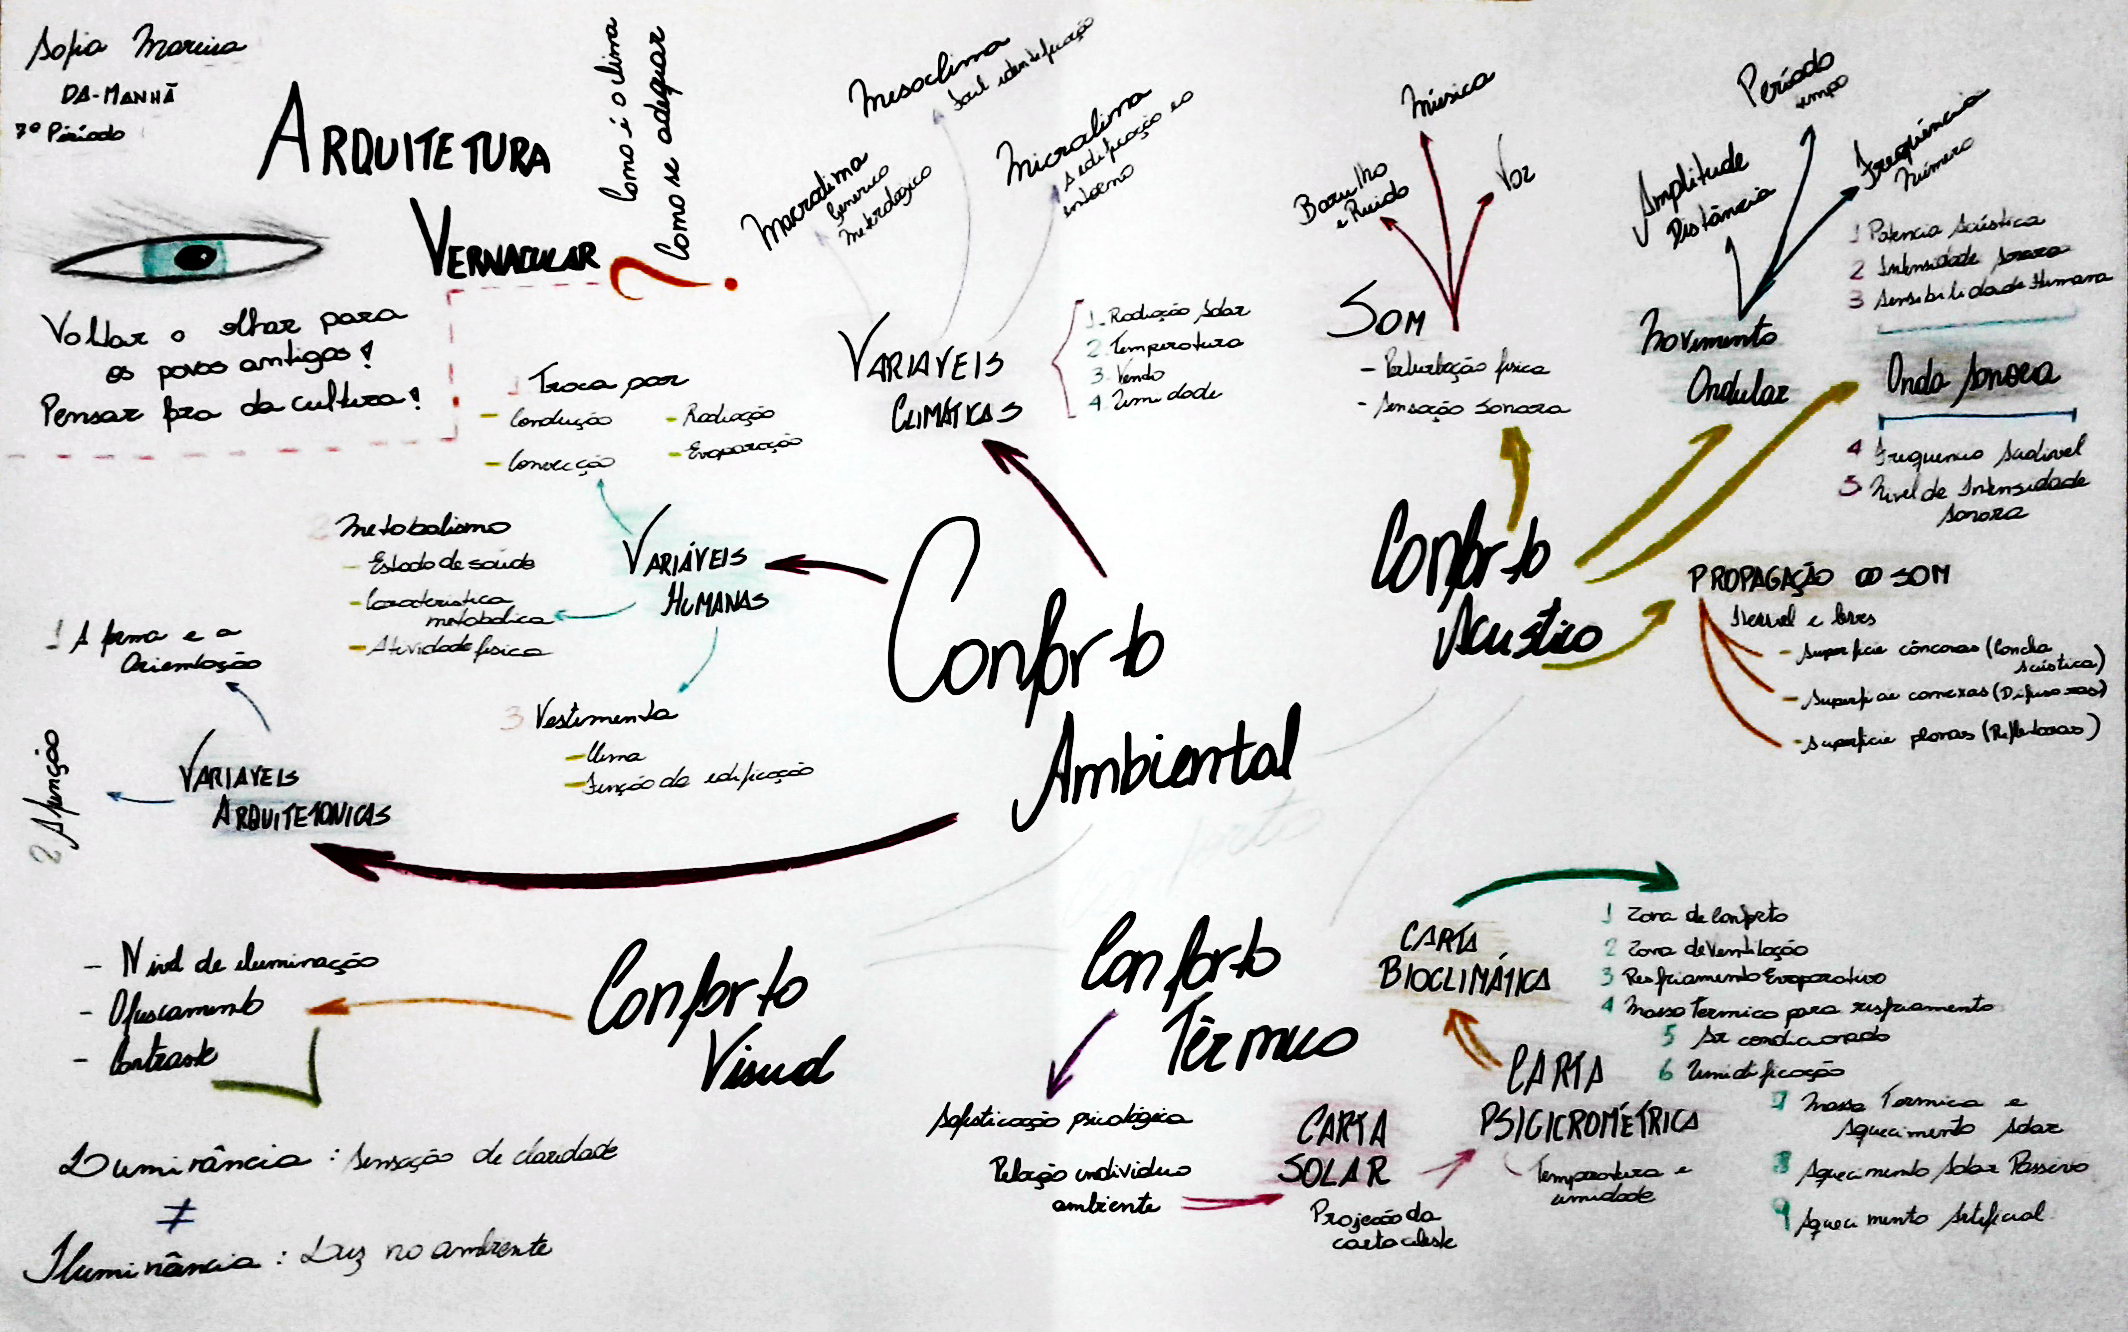 Sofia Moreira
DA-MANHÃ
7º Período
ARQUITETURA
VERNACULAR
Como é o clima
Como se adequar
?
Voltar o olhar para
os povos antigos!
Pensar fora da cultura!
Macroclima
Genérico
Meterológico
Mesoclima
Microclima
A edificação e o
entorno
VARIAVEIS
CLIMÁTICAS
1. Radiação Solar
2. Temperatura
3. Vendo
4. Umidade
1 Troca por
- Condução
- Radiação
- Convecção
- Evaporação
2 Metabolismo
- Estado de saúde
- Caracteristica
metabolica
- Atividade fisica
VARIÁVEIS
HUMANAS
3 Vestimenta
- Clima
- Função da edificação
1 A forma e a
Orientação
2 A função
VARIAVEIS
ARQUITETONICAS
Conforto
Ambiental
Barulho
e Ruido
Música
Voz
SOM
- Perturbação fisica
- Sensação sonora
Amplitude
Distância
Período
tempo
Frequência
Número
Movimento
Ondular
1 Potencia Acústica
2 Intensidade Sonora
3 Sensibilidade Humana
Onda Sonora
4 Frequencia Audivel
5 Nivel de Intensidade
Sonora
Conforto
Acustico
PROPAGAÇÃO DO SOM
- Superficie côncavas (Concha
Acústica)
- Superficie convexas (Difusoras)
- Superficie planas (Refletoras)
- Nivel de iluminação
- Ofuscamento
- Contraste
Conforto
Visual
Luminância : Sensação de claridade
≠
Iluminância : Luz no ambiente
Conforto
Térmico
Sofisticação psicológica
Relação individuo
ambiente
CARTA
SOLAR
Projeção da
carta celeste
CARTA
PSICICROMÉTRICA
Temperatura e
umidade
CARTA
BIOCLIMÁTICA
1 Zona de Conforto
2 Zona de Ventilação
3 Resfriamento Evaporativo
4 Massa Termica para resfriamento
5 Ar condicionado
6 Umidificação
7 Massa Termica e
Aquecimento Solar
8 Aquecimento Solar Passivo
9 Aquecimento Artificial